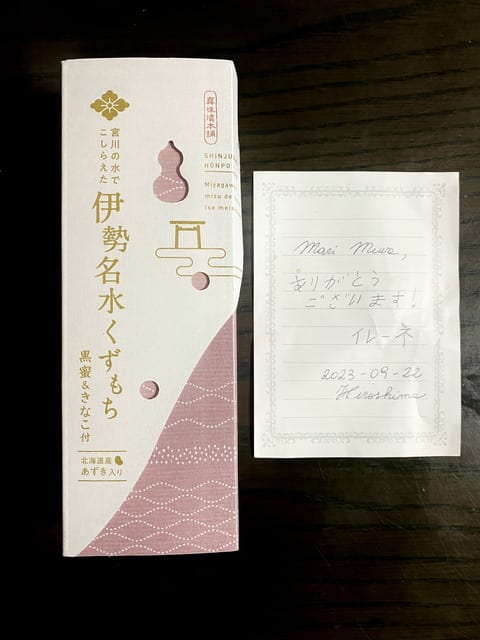 宮川の水で
こしらえた
伊勢名水くずもち
黒蜜&きなこ付
北海道産
あずき入り
真珠漬本舗
SHINJU
HONPO
Miyagaw
mizu de
Ise meis
Mari Miwa,
ありがとう
ございます!
イレーネ
2023-09-22
Hiroshima